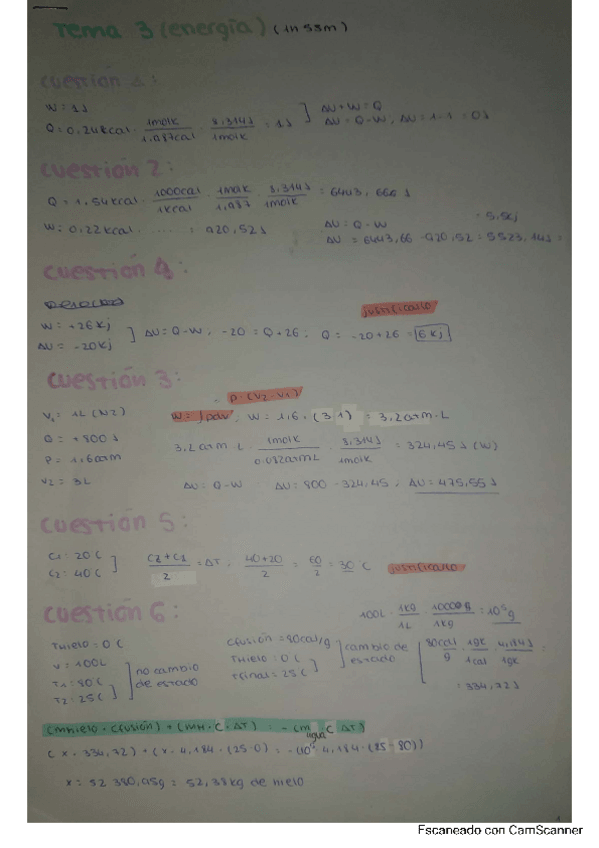 Tema 3 (energía) (1h 53m)
Cuestión 1:
W = 1J
Q = 0,24 cal · 1molK / 1,987cal · 8,314J / 1molK = 1J ] ΔU + W = Q
ΔU = Q - W, ΔU = 1 - 1 = 0J
Cuestión 2:
Q = 1,54 kcal · 1000cal / 1kcal · 1molK / 1,987 · 8,314J / 1molK = 6443,66 J
W = 0,22 kcal · ...... = 920,52J
ΔU = Q - W
ΔU = 6443,66 - 920,52 = 5523,14J =
= 5,5kJ
Cuestión 4:
W = +26 kJ
ΔU = -20kJ
] ΔU = Q - W, -20 = Q + 26, Q = -20 + 26 = 6 kJ
justificarlo
Cuestión 3:
P · (V2 - V1)
V1 = 1L (N2)
W = ∫pdv, W = 1,6 · (3-1) = 3,2 atm · L
Q = +800 J
P = 1,6 atm
3,2 atm · L · 1molK / 0,082atmL · 8,314J / 1molK = 324,45J (W)
V2 = 3L
ΔU = Q - W ΔU = 800 - 324,45, ΔU = 475,55J
Cuestión 5:
C1 = 20 C
C2 = 40 C
] C2 + C1 / 2 = ΔT, 40+20 / 2 = 60 / 2 = 30 C justificarlo
Cuestión 6:
100L · 1kg / 1L · 1000g / 1kg = 10⁵g
Thielo = 0 C
V = 100L
T1 = 80 C
T2 = 25 C
] no cambio de estado
Cfusión = 80cal/g
Thielo = 0 C
Tfinal = 25 C
] cambio de estado
80cal / g · 1gK / 1cal · 4,184J / 1gK =
= 334,72J
(mhielo · Cfusión) + (mH · C · ΔT) = -(m agua C ΔT)
(x · 334,72) + (x · 4,184 · (25-0) = -(10⁵ 4,184 · (25-80))
x = 52 380,95g = 52,38kg de hielo
Escaneado con CamScanner